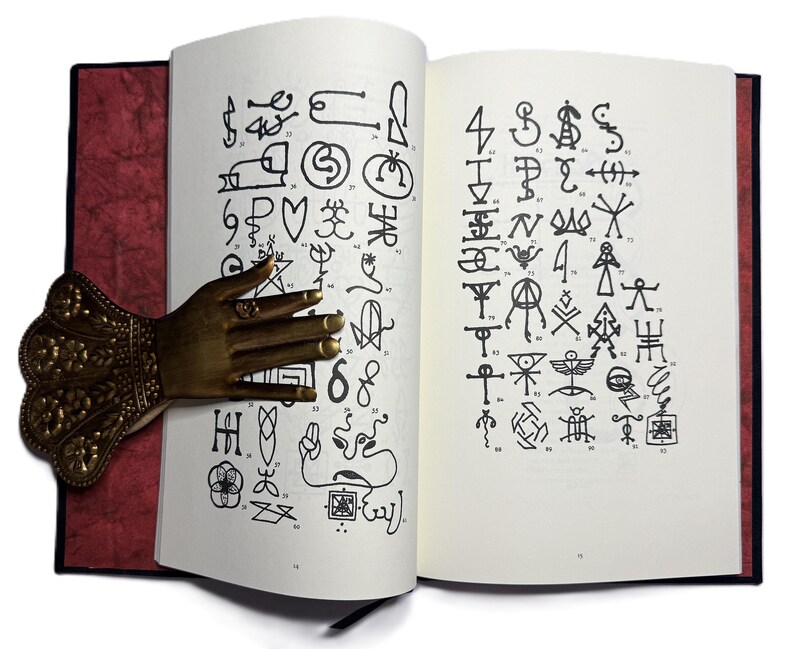 32 33 34 35
36 37 38
39 40 41 42 43
45 46 47
50 51
52 53 54 55
56 57
58 59
60 61
14
62 63 64 65
66 67 68
70 71 73
74 75 76 77
79 80 81
83 82 92
84 85 86 87
88 90 91 93
15